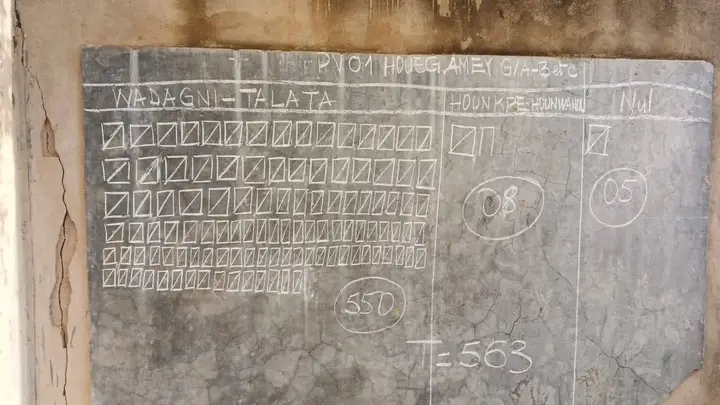 PV01 HOUEGAMEY G/A-3 etc
WADAGNI-TALATA
HOUNKPE-HOUNWANOU
Nul
08
05
550
T=563